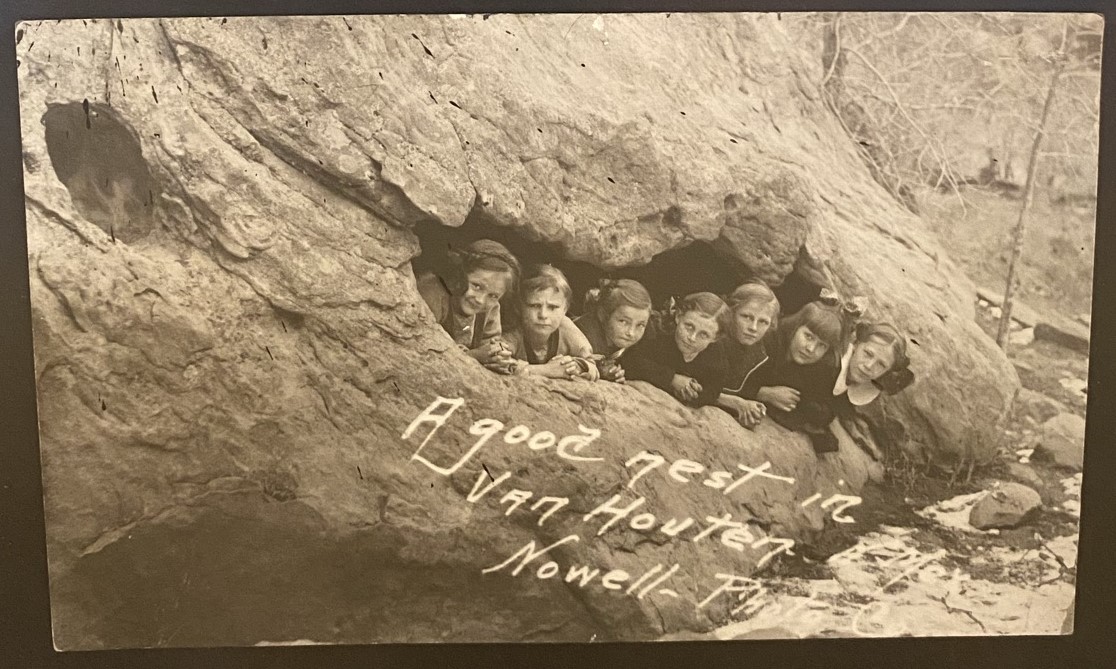 A good nest in
Van Houten
Nowell- Photo